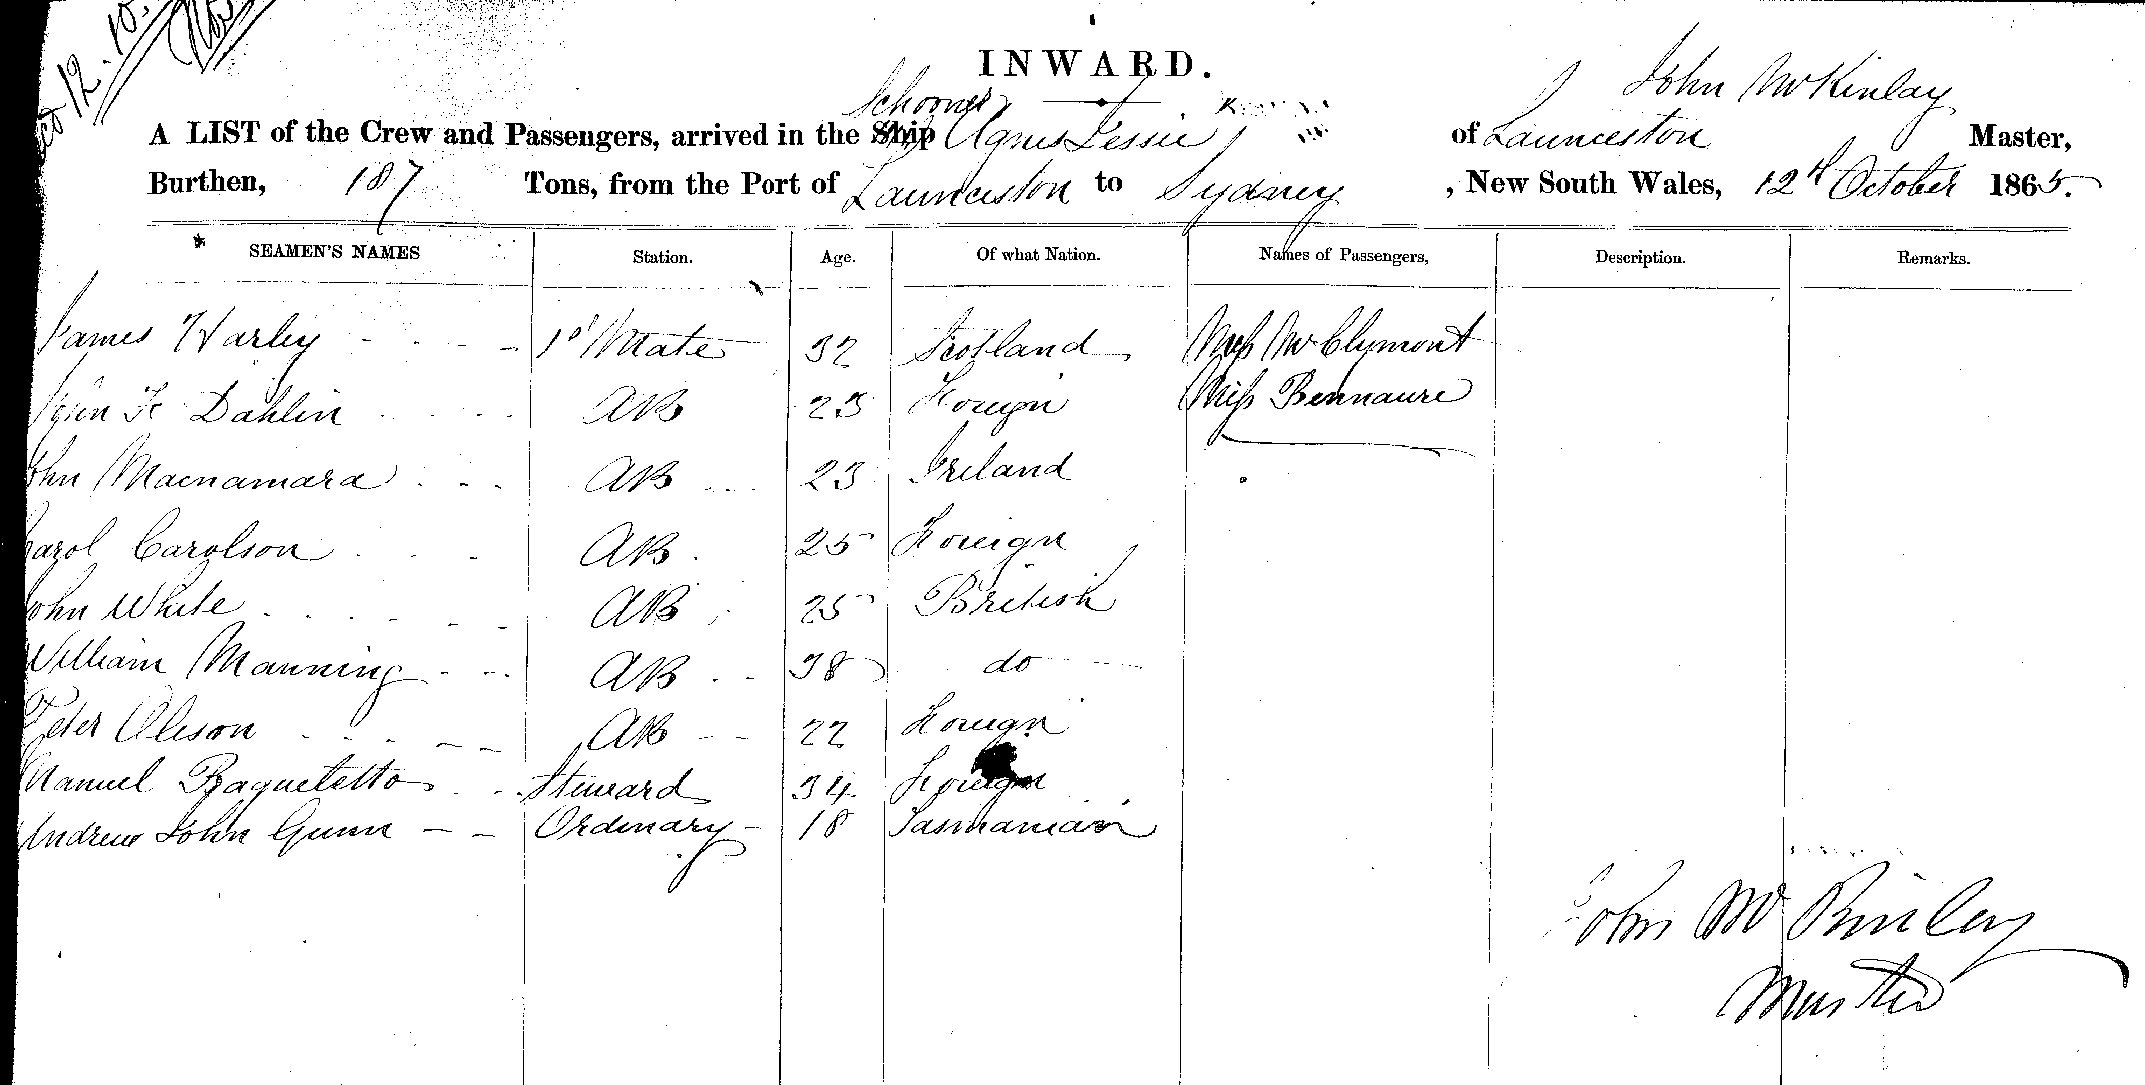 12. 10.
INWARD.
John McKinlay
A LIST of the Crew and Passengers, arrived in the Ship Schooner Agnes Jessie of Launceston Master,
Burthen, 187 Tons, from the Port of Launceston to Sydney, New South Wales, 12th October 1865.
SEAMEN'S NAMES Station. Age. Of what Nation. Names of Passengers, Description. Remarks.
James Harley 1st Mate 32 Scotland Miss McClymont
John F Dahlin AB 23 Foreign Miss Bennaure
John Macnamara AB 23 Ireland
Carol Carolson AB 25 Foreign
John White AB 25 British
William Manning AB 38 do
Peter Oleson AB 22 Foreign
Manuel Steward 34 Foreign
Andrew John Gunn Ordinary 18 Tasmanian
John McKinlay
Master